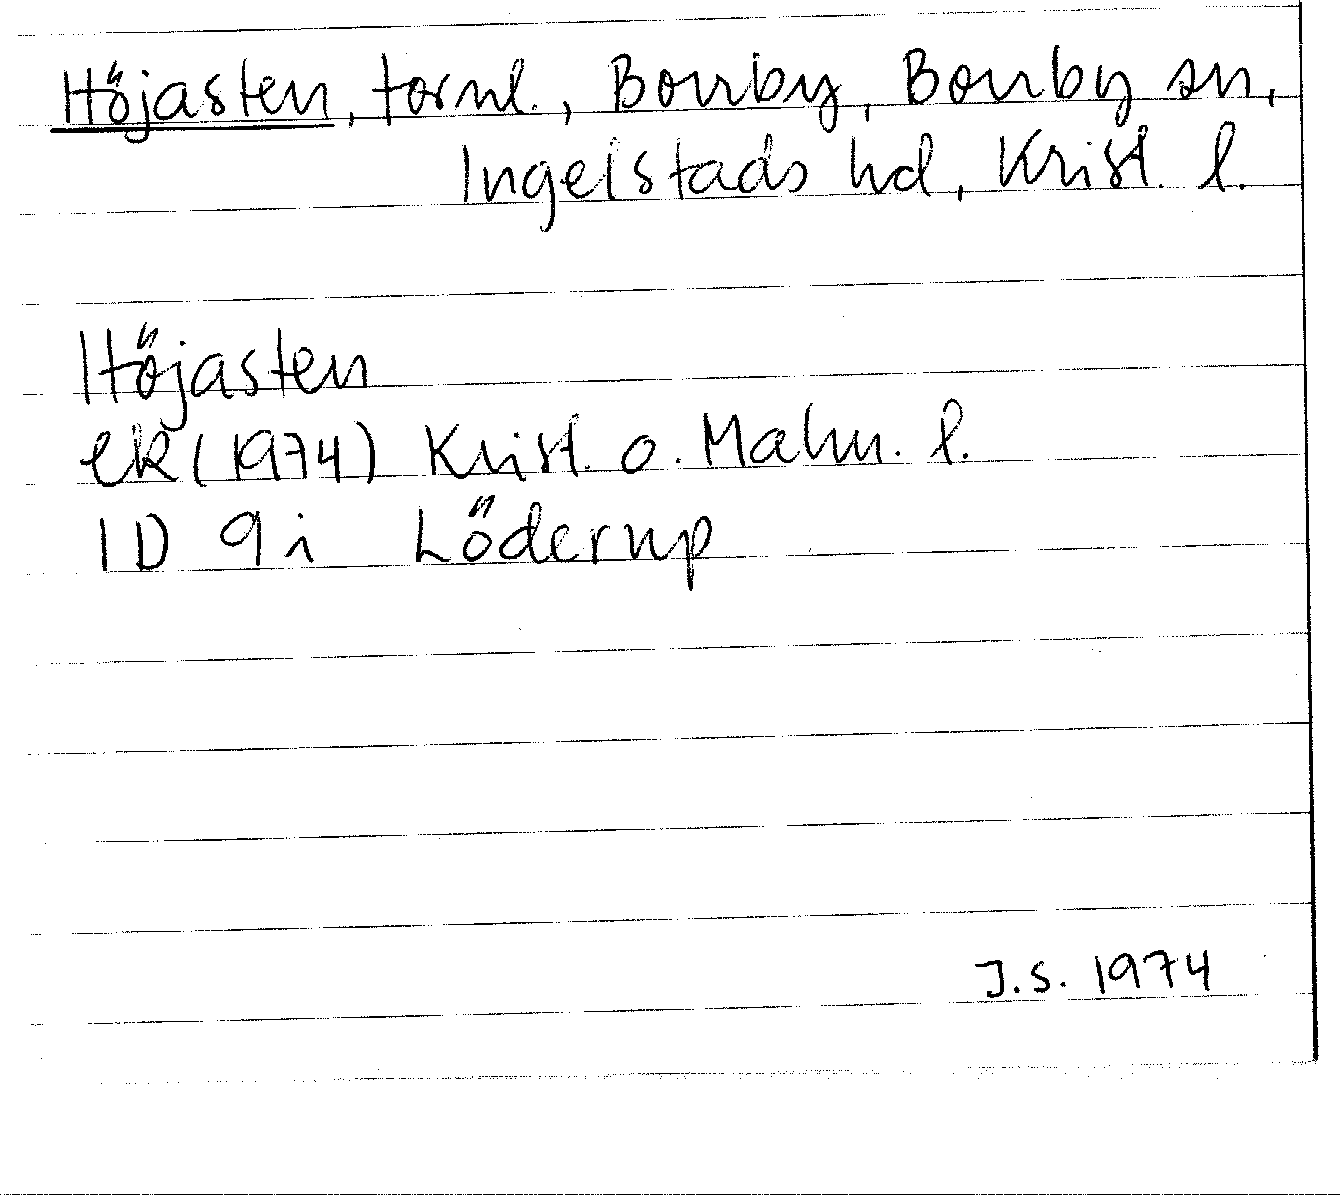 Höjasten, fornl., Borrby, Borrby sn,
Ingelstads hd, Krist. l.
Höjasten
ek (1974) Krist. o. Malm. l.
1D 9i Löderup
J.S. 1974